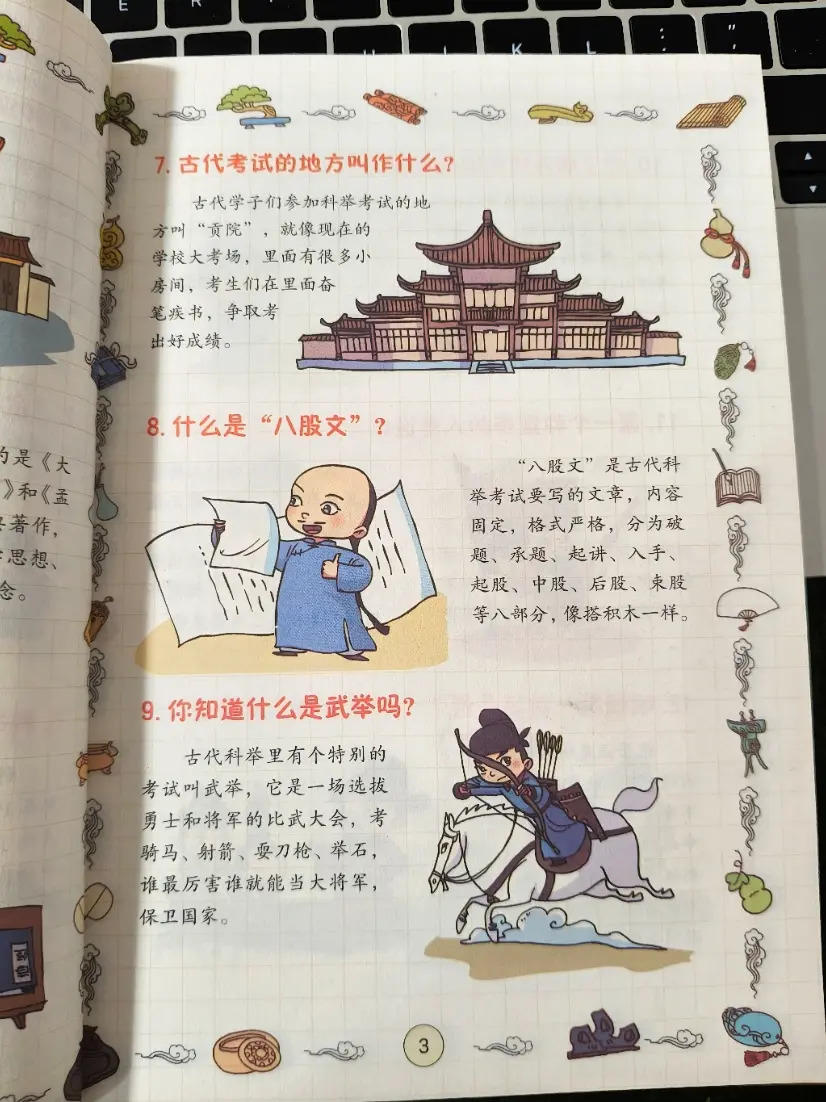 E
R
K
L
:
;
"
,
的是《大
》和《孟
著作，
思想、
念。
7. 古代考试的地方叫作什么？
古代学子们参加科举考试的地
方叫“贡院”，就像现在的
学校大考场，里面有很多小
房间，考生们在里面奋
笔疾书，争取考
出好成绩。
8. 什么是“八股文”？
“八股文”是古代科
举考试要写的文章，内容
固定，格式严格，分为破
题、承题、起讲、入手、
起股、中股、后股、束股
等八部分，像搭积木一样。
9. 你知道什么是武举吗？
古代科举里有个特别的
考试叫武举，它是一场选拔
勇士和将军的比武大会，考
骑马、射箭、耍刀枪、举石，
谁最厉害谁就能当大将军，
保卫国家。
3